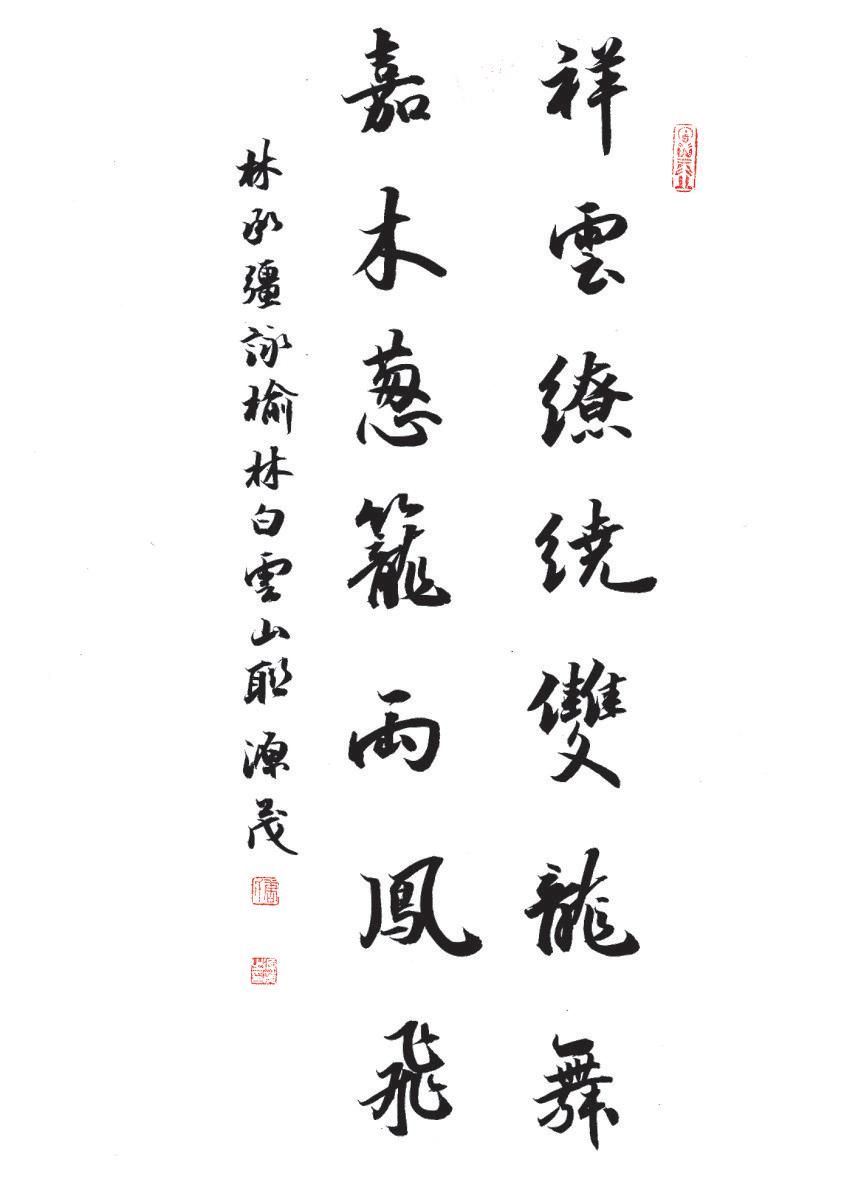 祥雲繚繞雙龍舞
嘉木葱籠兩鳳飛
林承疆詠榆林白雲山耶源茂